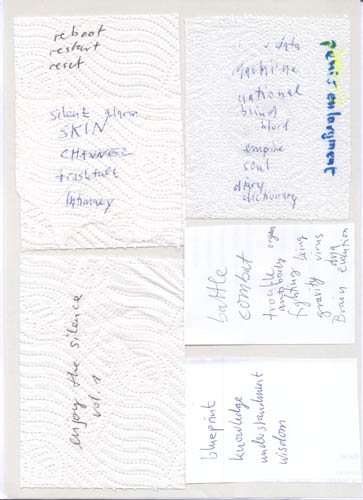 reboot
restart
reset
silent alarm
SKIN
CHANNEL
trashtalk
Intimacy
data
machine
national
blind
blood
empire
soul
diary
dictionary
penis enlargment
battle
combat
trouble
antibody
organ
fighting being
gravity virus
Brain evolution
dna
enjoy the silence
vol. 1
blueprint
knowledge
understandment
wisdom